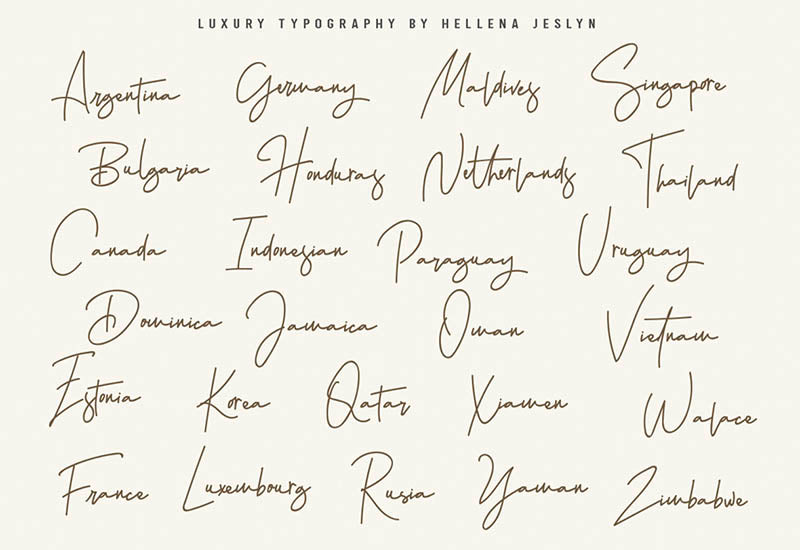 LUXURY TYPOGRAPHY BY HELLENA JESLYN
Argentina Germany Maldives Singapore
Bulgaria Honduras Netherlands Thailand
Canada Indonesian Paraguay Uruguay
Dominica Jamaica Oman Vietnam
Estonia Korea Qatar Xiamen Walace
France Luxembourg Rusia Yaman Zimbabwe